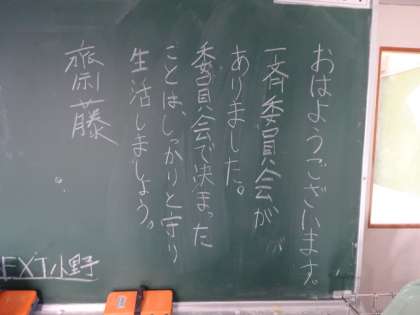 おはようございます。
一斉委員会が
ありました。
委員会で決まった
ことは、しっかりと守り
生活しましょう。
齋藤
EXT小野